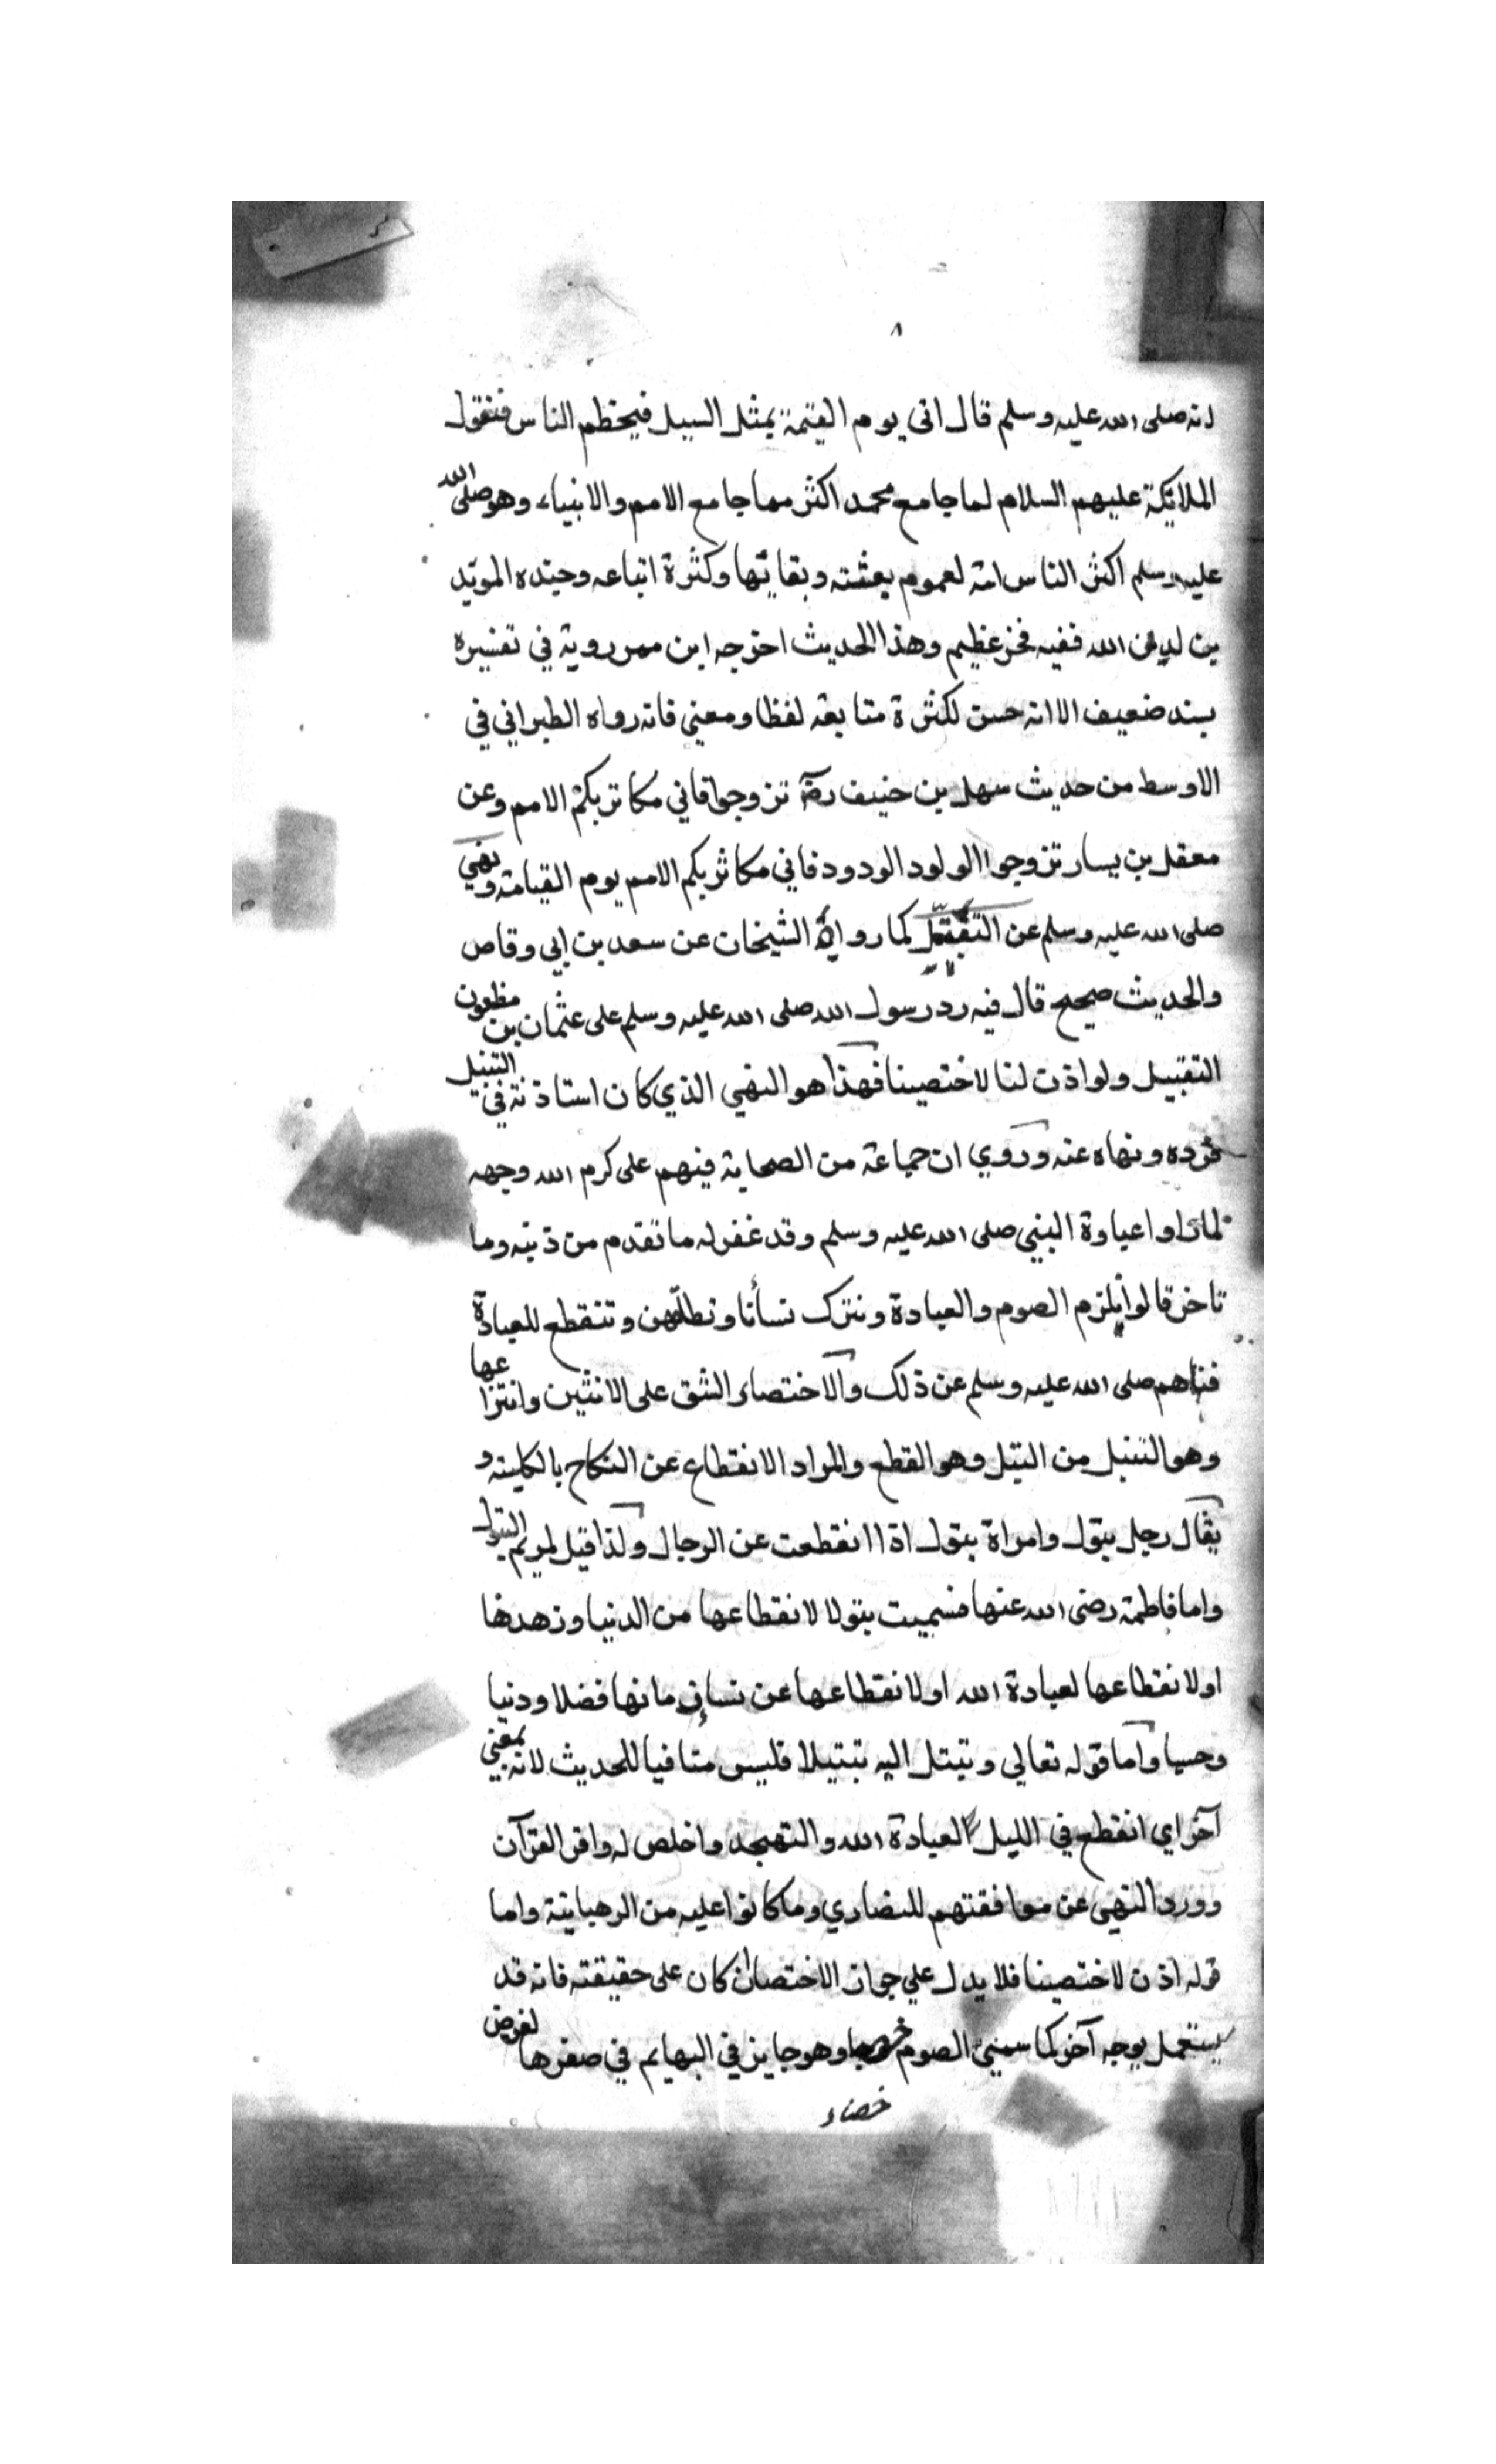 ٨
انه صلى الله عليه وسلم قال اتى يوم القيمة بمثل السيل فيحطم الناس فتقول
الملائكة عليهم السلام لما جا مع محمد اكثر مما جا مع الامم والانبياء وهو صلى الله
عليه وسلم اكثر الناس امة لعموم بعثته وبقائها وكثرة اتباعه وجنده المويّد
من لدن الله ففيه فخر عظيم وهذا الحديث اخرجه ابن مردوية في تفسيره
بسند ضعيف الا انه حسن لكثرة متابعة لفظا ومعني فانه رواه الطبراني في
الاوسط من حديث سهل بن حنيف رضه تزوجوا فاني مكاثر بكم الامم وعن
معقل بن يسار تزوجوا الولود الودود فاني مكاثر بكم الامم يوم القيامة ونهي
صلى الله عليه وسلم عن كما رواه الشيخان عن سعد بن ابي وقاص
والحديث صحيح قال فيه رد رسول الله صلى الله عليه وسلم على عثمان بن مظعون
التقبيل ولو اذن لنا لاختصينا فهذا هو النهي الذي كان استاذنه في التبتل
فرده ونهاه عنه وروي ان جماعة من الصحابة فيهم على كرم الله وجهه
لما راوا عبادة النبي صلى الله عليه وسلم وقد غفر له ما تقدم من ذنبه وما
تاخر قالوا يلزم الصوم والعبادة ونترك نسأنا ونطلقهن وتنقطع للعبادة
فنهاهم صلى الله عليه وسلم عن ذلك والاختصاء الشق على الانثيين وانتزاعها
وهو التبتل من البتل وهو القطع والمراد الانقطاع عن النكاح بالكلية و
يقال رجل بتول وامراة بتول اذا انقطعت عن الرجال ولذا قيل لمريم البتول
واما فاطمة رضى الله عنها فسميت بتولا لانقطاعها من الدنيا وزهدها
او لانقطاعها لعبادة الله او لانقطاعها عن نساء زمانها فضلا ودنيا
وحسبا واما قوله تعالي وتبتل اليه تبتيلا فليس منافيا للحديث لانه بمعني
آخر اي انقطع في الليل لعبادة الله والتهجد واخلص له واقر القرآن
وورد النهى عن موافقتهم للنصاري وما كانوا عليه من الرهبانية واما
قوله اذن لاختصينا فلا يدل علي جواز الاختصا ان كان على حقيقته فانه قد
يستعمل بوجه آخر كما سمي الصوم وهو جايز في البهايم في صغرها لغرض
خصاء